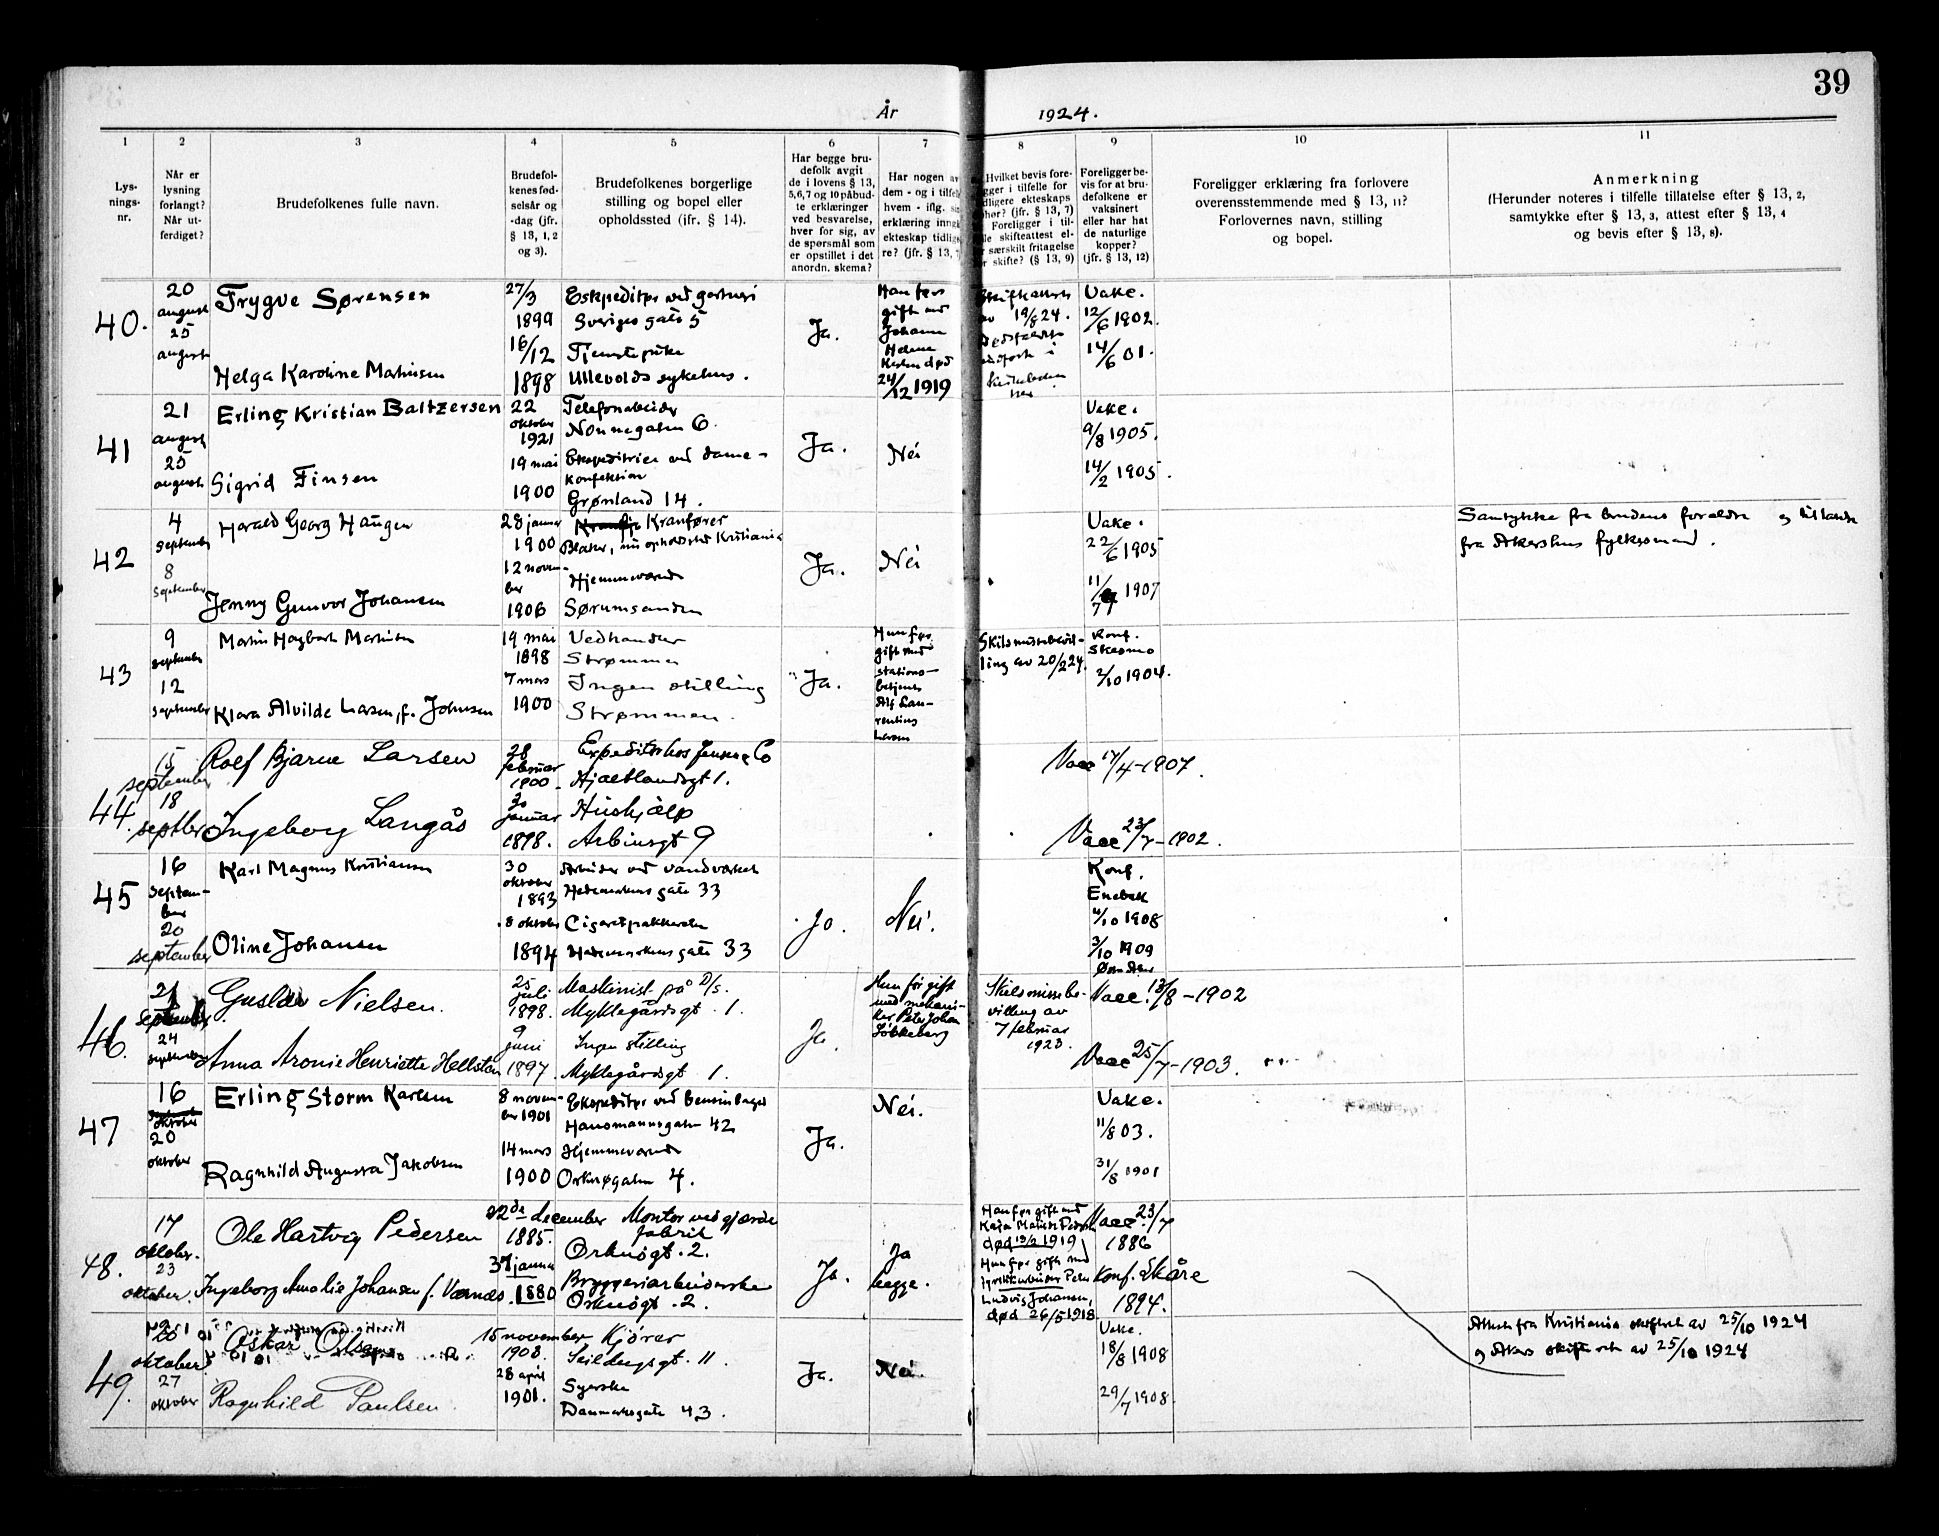 39
År 1924.
1 2 3 4 5 6 7 8 9 10 11
Lys-
nings-
nr.
Når er
lysning
forlangt?
Når ut-
ferdiget?
Brudefolkenes fulle navn.
Brudefol-
kenes fød-
selsår og
-dag (jfr.
§ 13, 1, 2
og 3).
Brudefolkenes borgerlige
stilling og bopel eller
opholdssted (ifr. § 14).
Har begge bru-
defolk avgit
de i lovens § 13,
5,6,7 og 10 påbud-
te erklæringer
ved besvarelse,
hver for sig, av
de spørsmål som
er opstillet i det
anordn. skema?
Har nogen av
dem - og i tilfel
hvem - iflg. si
erklæring inng
ekteskap tidlig
re? (jfr. § 13,
Hvilket bevis fore-
gger i tilfelle for
dligere ekteskaps
hør? (jfr. § 13, 7)
Foreligger i til-
lle skifteattest el-
r særskilt fritagelse
r skifte? (§ 13, 9)
Foreligger be-
vis for at bru-
defolkene er
vaksinert
eller har hat
de naturlige
kopper?
(jfr. § 13, 12)
Foreligger erklæring fra forlovere
overensstemmende med § 13, 11?
Forlovernes navn, stilling
og bopel.
Anmerkning
(Herunder noteres i tilfelle tillatelse efter § 13, 2,
samtykke efter § 13, 3, attest efter § 13, 4
og bevis efter § 13, 8).
40.
20
august
25
august
Trygve Sørensen
Helga Karoline Mathisen
27/3
1899
16/12
1898
Ekspeditør ved gartneri
Sveriges gate 5
Tjenestepike
Ullevolds sykehus.
Ja.
Han før
gift med
Johanne
Helene
død
24/12 1919
Skifteattest
av 19/8 24.
Vake.
12/6 1902.
14/6 01.
41
21
august
25
august
Erling Kristian Baltzersen
Sigrid Finsen
22
oktober
1921
19 mai
1900
Telefonarbeider
Nonnegaten 6.
Ekspeditrice ved dame-
konfektion
Grønland 14.
Ja.
Nei
Vake.
9/8 1905.
14/2 1905.
42
4
september
8
september
Harald Georg Haugen
Jenny Gunvor Johansen
28 januar
1900
12 novem-
ber
1906
Kranfører
Blaker, nu opholdssted Kristiania
Hjemmeværende
Sørumsanden
Ja.
Nei
Vake.
22/6 1905
11/7 1907
Samtykke fra brudens foreldre og tillatelse
fra Akershus fylkesmand.
43
9
september
12
september
Martin Hagbart Martinsen
Klara Alvilde Larsen, f. Johnsen
19 mai
1898
7 mars
1900
Vedhandler
Strømmen
Ingen stilling
Strømmen.
Ja.
Hun før
gift med
stations-
betjent
Alf Lau-
rentius
Larsen
Skilsmissebevil-
ling av 20/2 24.
Konf.
Skedsmo
2/10 1904.
44.
15
september
18
septber
Rolf Bjarne Larsen
Ingeborg Langås
28
februar
1900
30
januar
1898.
Expeditør hos Jensen & Co
Hjaltlandsgt 1.
Hushjælp
Arbinsgt 9
Vacc 17/4-1907.
Vacc 23/7-1902.
45
16
septem-
ber
20
september
Karl Magnus Kristiansen
Oline Johansen
30
oktober
1893
8 oktober
1894
Arbeider ved vandverket
Hedemarkens gate 33
Cigaretpakkerske
Hedemarkens gate 33
Ja.
Nei.
Konf.
Enebak
4/10 1908
3/10 1909
46.
21
september
24
september
Gustav Nielsen.
Anna Aronie Henriette Hellsten
25
juli
1898.
9
juni
1897.
Maskinist på D/s.
Myklegårdsgt. 1.
Ingen stilling
Myklegårdsgt 1.
Ja.
Hun før gift
med mekani-
ker Peter Johan
Løkkeberg
Skilsmissebe-
villing av
7 februar
1923.
Vacc. 13/8-1902
Vacc 25/7-1903.
47
16
oktober
20
oktober
Erling Storm Karlsen
Ragnhild Augusta Jakobsen
8 novem-
ber 1901
14 mars
1900
Ekspeditør ved bensinlager
Hausmannsgaten 42
Hjemmeværende
Orknøgaten 4.
Ja.
Nei.
Vake.
11/8 03.
31/8 1901
48.
17
oktober.
23
oktober.
Ole Hartvig Pedersen
Ingeborg Amalie Johansen f. Værnes.
22de december
1885.
31 januar
1880
Montør ved gjærde
fabrik
Orknøgt. 2.
Bryggeriarbeiderske
Orknøgt. 2.
Ja.
Ja
begge.
Han før gift med
Kaja Pedersen
død 19/2 1919
Hun før gift med
fyrstikarbeider Peter
Ludvig Johansen,
død 26/5 1918
Vacc. 23/7
1886
Konf. Skåre
1894.
49.
20
oktober
27
oktober
Oskar Olsen
Ragnhild Paulsen
15 november
1908.
28 april
1901.
Kjører
Seilduksgt. 11.
Syerske
Danmarksgate 43.
Ja.
Nei.
Vake.
18/8 1908
29/7 1908.
Attest fra Kristiania skifteret av 25/10 1924
og Akers skifteret av 25/10 1924